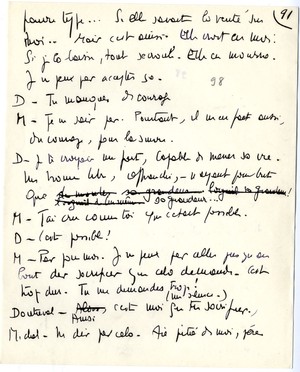 91
pauvre type... Si elle savait la vérité sur
moi.. Mais c'est ainsi. Elle croit en moi.
Si je la laisse, tout s'écroule. Elle en mourra.
Je ne peux pas accepter ça.
98
D – Tu manques de courage
M – Je ne sais pas. Pourtant, il en faut aussi,
du courage, pour la suivre.
D – Je te croyais un fort, capable de mener sa vie.
Un homme libre, affranchi, n'ayant pour but
que sa grandeur
sa grandeur..
M – J'ai cru comme toi que c'était possible.
D – C'est possible!
M – Pas pour moi. Je ne peux pas aller jusqu'au
bout des sacrifices que cela demande. C'est
trop dur. Tu me demandes trop!
(un silence.)
Doutreval – Alors, c'est moi que tu sacrifies,
Ainsi
Michel – Ne dis pas cela. Aie pitié de moi, père